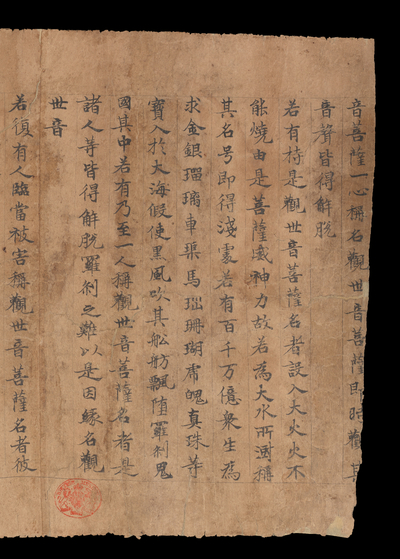 音菩薩一心稱名觀世音菩薩即時觀其
音聲皆得解脱
若有持是觀世音菩薩名者設入大火火不
能燒由是菩薩威神力故若為大水所漂稱
其名号即得淺處若有百千万億衆生為
求金銀瑠璃車渠馬瑙珊瑚虎魄真珠等
寶入於大海假使黑風吹其舩舫飄堕羅刹鬼
國其中若有乃至一人稱觀世音菩薩名者是
諸人等皆得解脱羅刹之難以是因緣名觀
世音
若復有人臨當被害稱觀世音菩薩名者彼